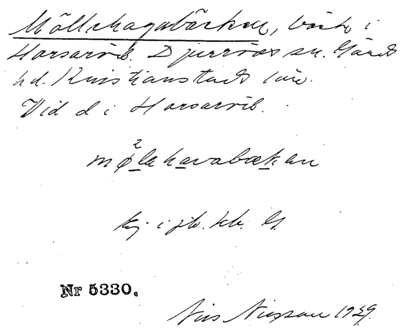 Möllehagabäcken, bäck i
Horsaröd. Djurröds sn. Gärds
hd. Kristianstads län.
Vid d i Horsaröd.
mølehavabækan
Ej i jb. kb. G
Nr 5330.
Nils Nilsson 1929.